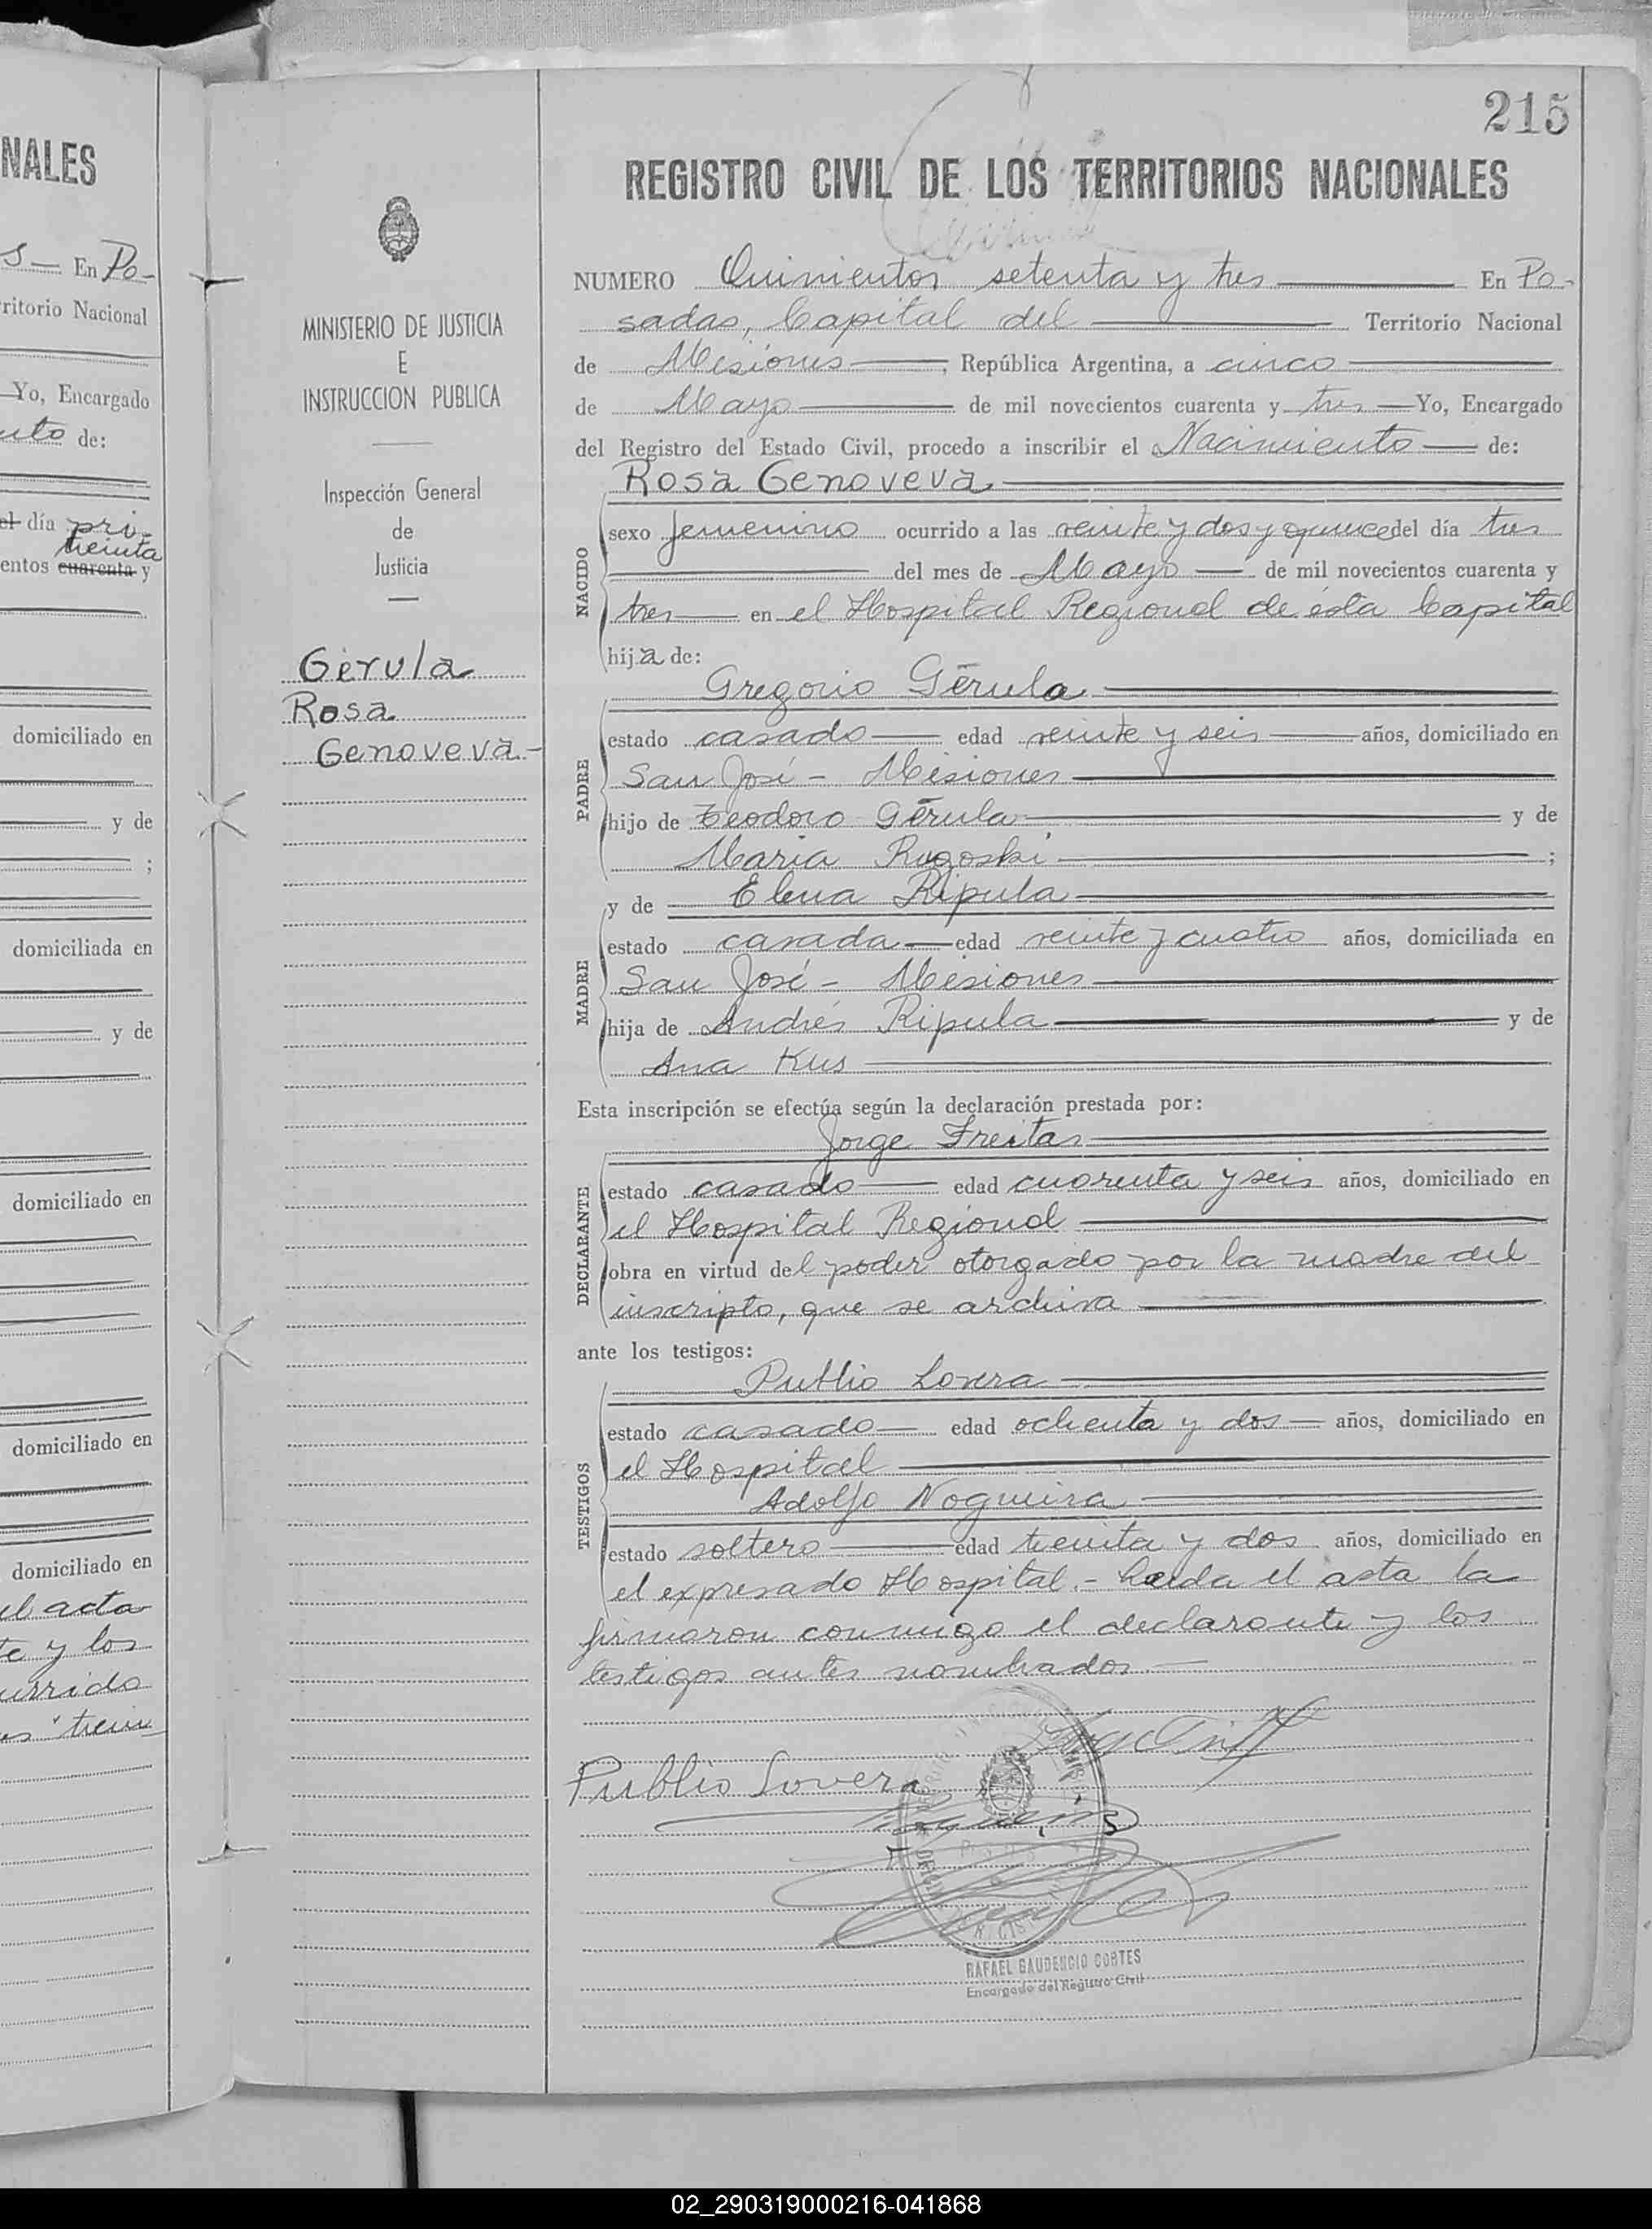 NALES
S — En Po-
ritorio Nacional
Yo, Encargado
nto de:
el día pri-
treinta
entos cuarenta y
domiciliado en
y de
;
domiciliada en
y de
domiciliado en
domiciliado en
domiciliado en
el acta
te y los
urrido
es "trein
MINISTERIO DE JUSTICIA
E
INSTRUCCION PUBLICA
Inspección General
de
Justicia
Gérula
Rosa
Genoveva-
215
REGISTRO CIVIL DE LOS TERRITORIOS NACIONALES
NUMERO Quinientos setenta y tres En Po-
sadas, Capital del Territorio Nacional
de Misiones, República Argentina, a cinco
de Mayo de mil novecientos cuarenta y tres Yo, Encargado
del Registro del Estado Civil, procedo a inscribir el Nacimiento de:
Rosa Genoveva
NACIDO
sexo femenino ocurrido a las veinte y dos y quince del día tres
del mes de Mayo de mil novecientos cuarenta y
tres en el Hospital Regional de ésta Capital
hija de:
Gregorio Gérula
PADRE
estado casado edad veinte y seis años, domiciliado en
San José - Misiones
hijo de Teodoro Gérula y de
Maria Rugoski ;
y de Elena Ripula
MADRE
estado casada edad veinte y cuatro años, domiciliada en
San José - Misiones
hija de Andrés Ripula y de
Ana Kus
Esta inscripción se efectúa según la declaración prestada por:
Jorge Freitas
DECLARANTE
estado casado edad cuarenta y seis años, domiciliado en
el Hospital Regional
obra en virtud del poder otorgado por la madre del
inscripto, que se archiva
ante los testigos:
Publio Lovera
TESTIGOS
estado casado edad ochenta y dos años, domiciliado en
el Hospital
Adolfo Nogueira
estado soltero edad treinta y dos años, domiciliado en
el expresado Hospital.- Leida el acta la
firmaron conmigo el declarante y los
testigos antes nombrados
Publio Lovera
RAFAEL GAUDENCIO CORTES
Encargado del Registro Civil
02_290319000216-041868